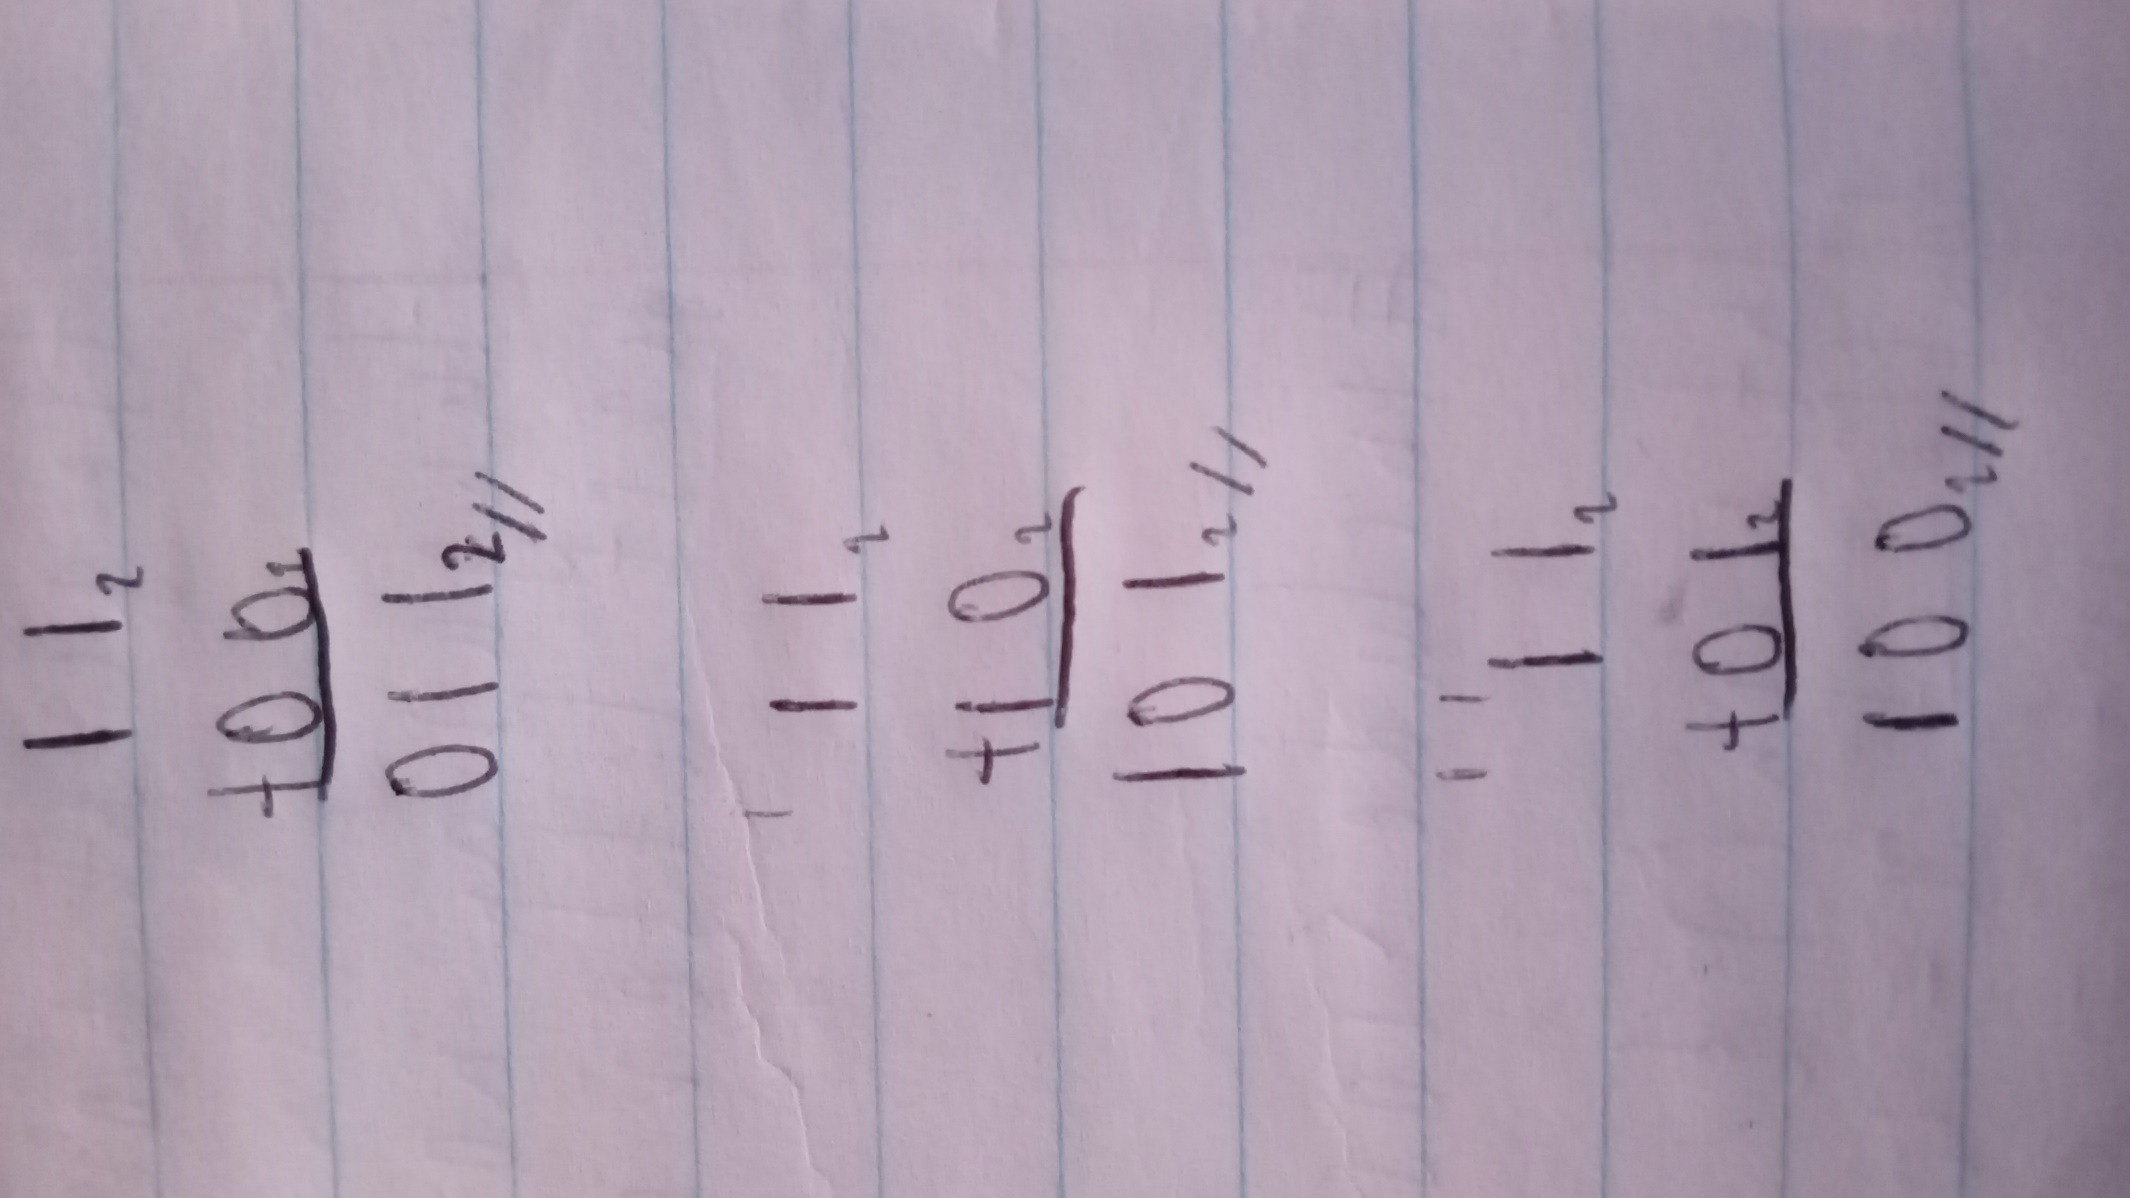 1 1₂
+0 0₂
0 1 1₂//
1
1 1₂
+1 0₂
1 0 1₂//
1 1
1 1₂
+0 1₂
1 0 0₂//